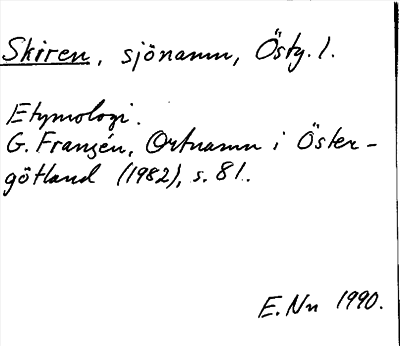 Skiren, sjönamn, Östg. l.
Etymologi.
G. Franzén, Ortnamn i Öster-
götland (1982), s. 81.
E. Nn 1990.